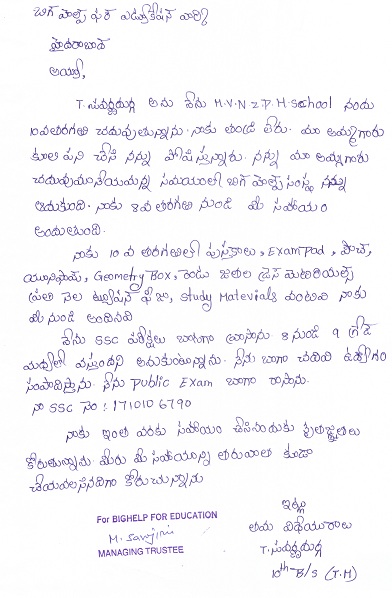 బిగ్ హెల్ప్ ఫర్ ఎడ్యుకేషన్ వారికి
హైదరాబాద్
అయ్యా,
T. సువర్ణదుర్గ అను నేను M.V.N Z.P.H. school నందు
10వ తరగతి చదువుతున్నాను. నాకు తండ్రి లేరు. మా అమ్మగారు
కూలి పని చేసి నన్ను పోషిస్తున్నారు. నన్ను మా అమ్మగారు
చదువు మానేయమన్న సమయంలో బిగ్ హెల్ప్ సంస్థ నన్ను
ఆదుకుంది. నాకు 8వ తరగతి నుండి మీ సహాయం
అందుతుంది.
నాకు 10 వ తరగతిలో పుస్తకాలు, Exam pad, పౌచ్,
యూనిఫామ్, Geometry Box, రెండు జతల డ్రెస్ మెటీరియల్స్
ప్రతి నెల ట్యూషన్ ఫీజు, study Materials వంటివి నాకు
మీ నుండి అందినవి
నేను SSC పరీక్షలు బాగుగా వ్రాసాను 8 నుండి 9 గ్రేడ్
మధ్యలో వస్తుందని అనుకుంటున్నాను. నేను బాగా చదివి ఉద్యోగం
సంపాదిస్తాను. నేను Public Exam బాగా రాసాను.
నా SSC నెం : 1710106790
నాకు ఇంత వరకు సహాయం చేసినందుకు కృతజ్ఞతలు
కోరుతున్నాను. మీరు మీ సహాయాన్ని తరువాత కూడా
చేయవలసినదిగా కోరుచున్నాను
ఇట్లు
తమ విధేయురాలు
T. సువర్ణదుర్గ
10th-B/s (T.M)
For BIGHELP FOR EDUCATION
M. Sarojini
MANAGING TRUSTEE